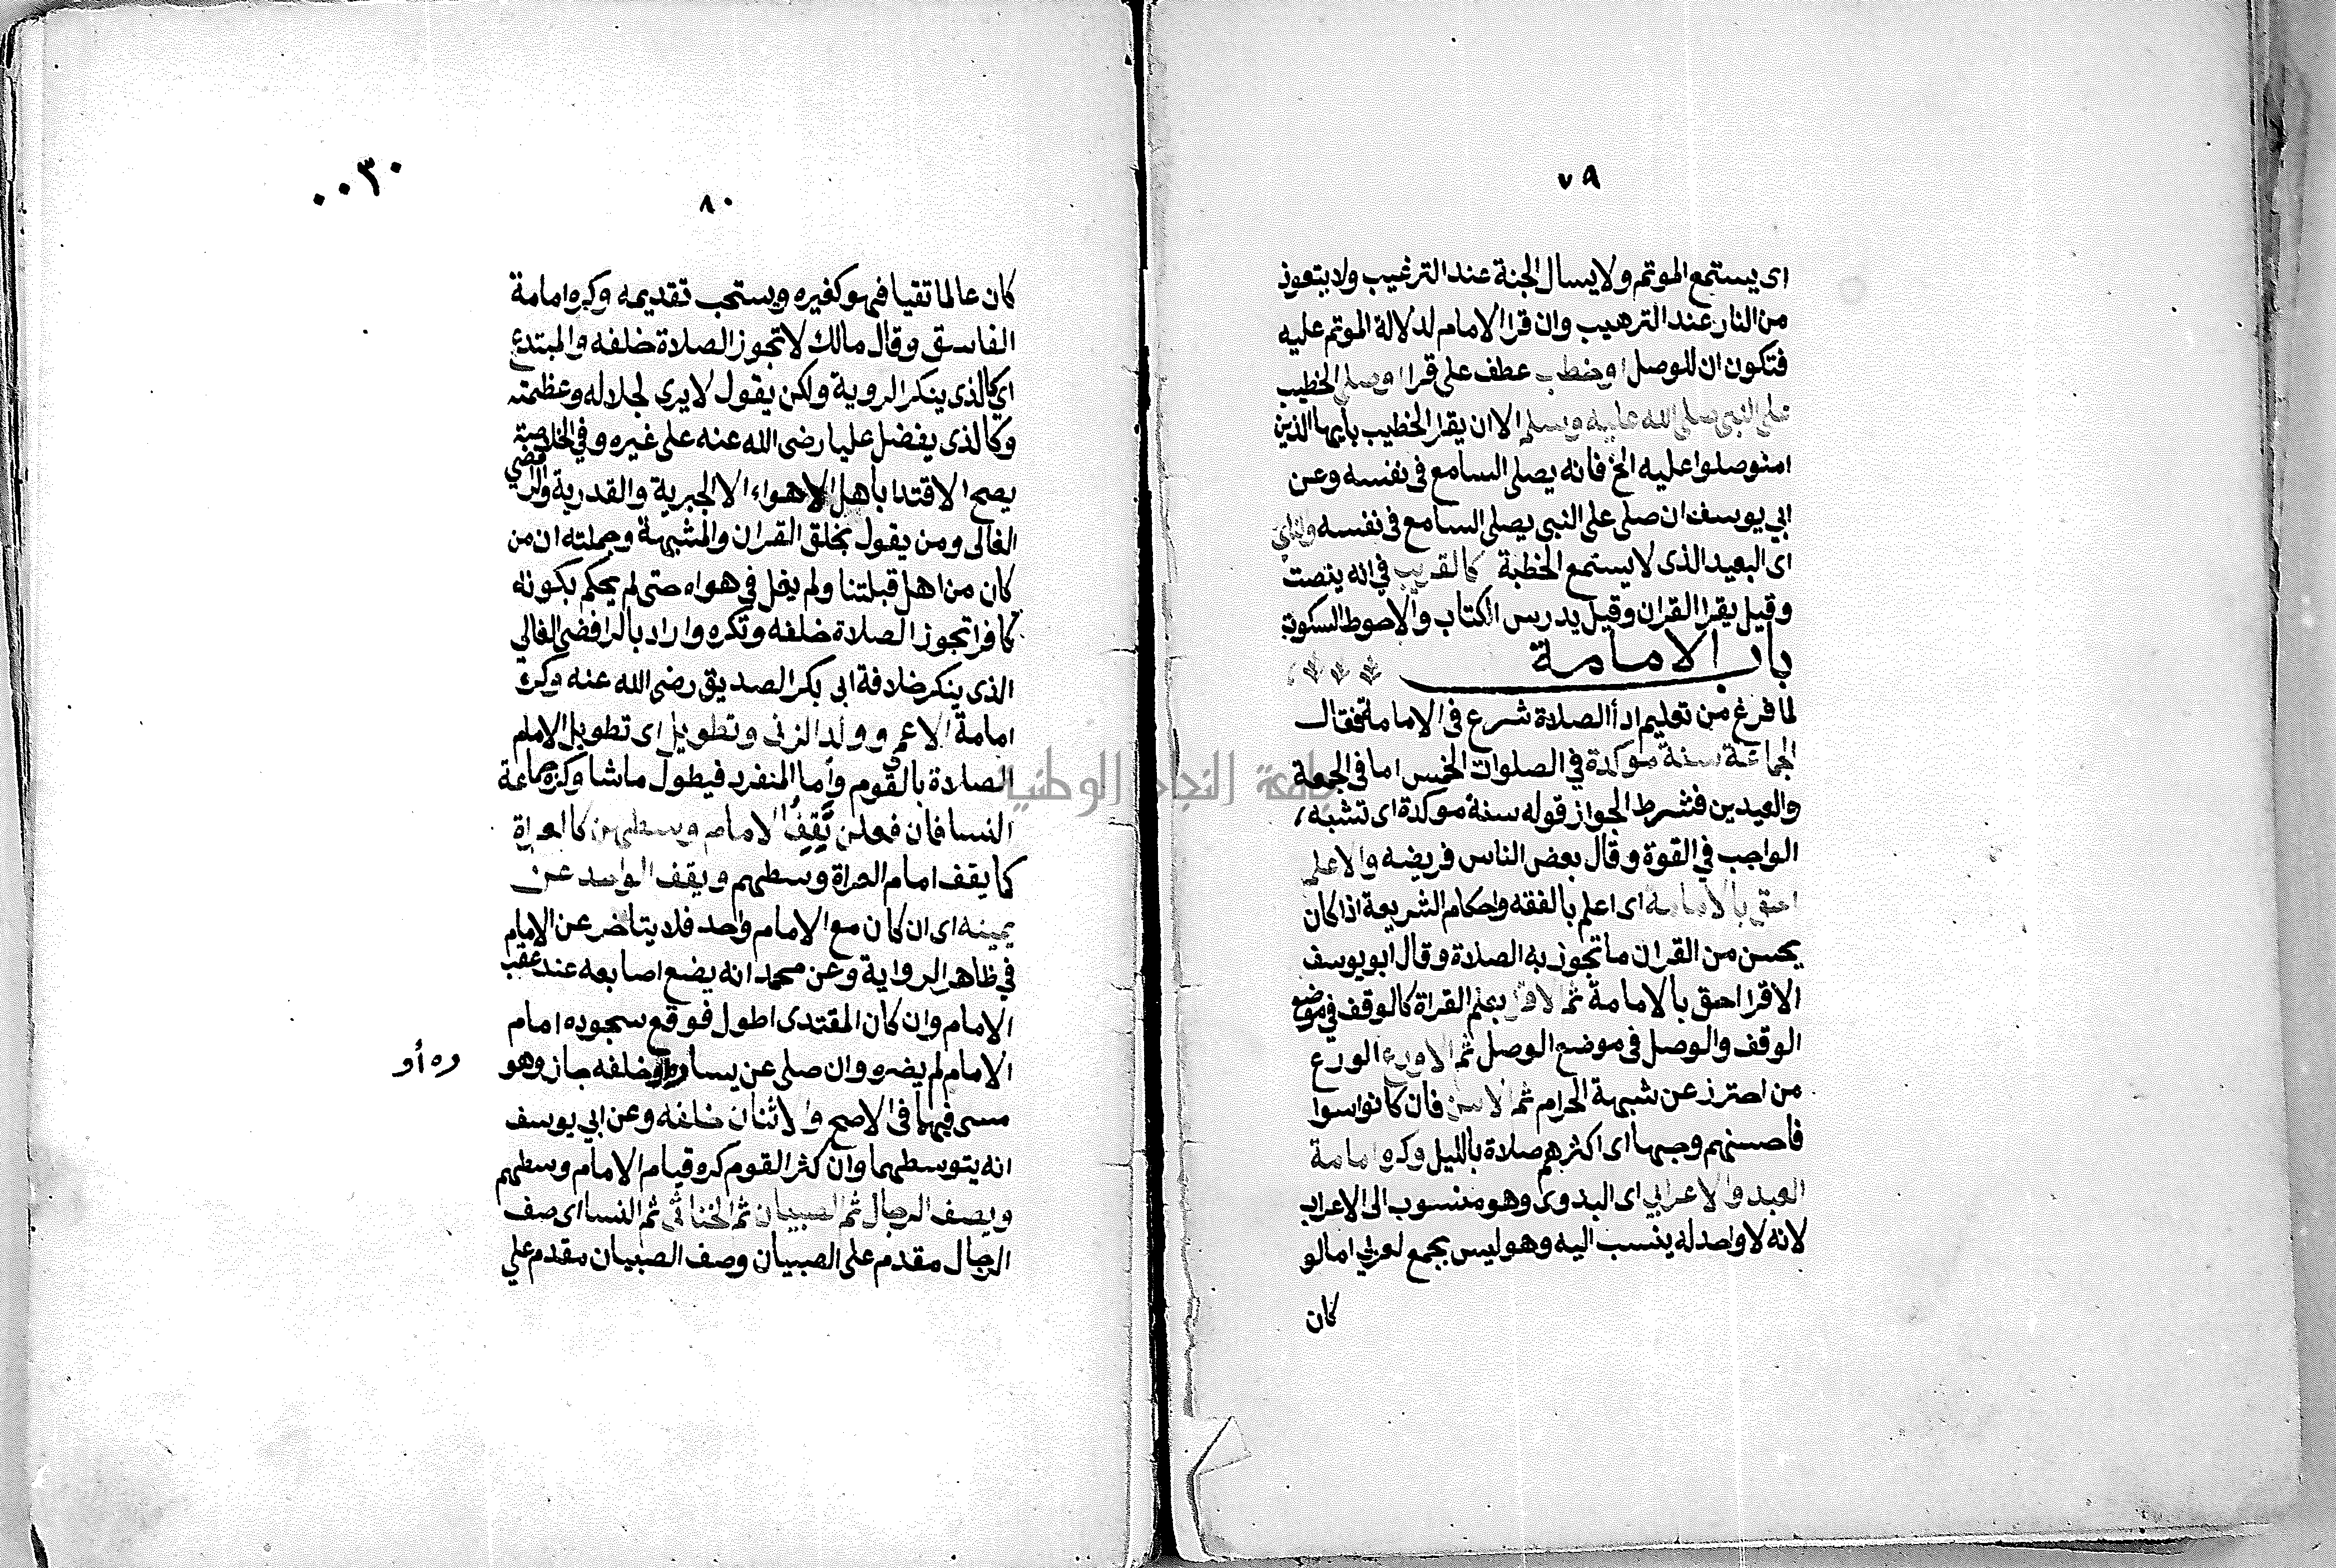 ٧٩
اى يستمع الموتم ولا يسال الجنة عند الترغيب ولا يتعوذ
من النار عند الترهيب وان قرا الامام لدلالة الموتم عليه
فتكون ان للوصل او خطب عطف على قرا او صلى الخطيب
على النبى صلى الله عليه وسلم الا ان يقرا الخطيب يأيها الذين
امنو صلوا عليه الخ فانه يصلى السامع فى نفسه وعن
ابي يوسف ان صلى على النبى يصلى السامع فى نفسه والناى
اى البعيد الذى لا يستمع الخطبة كالقريب في انه ينصت
وقيل يقرا القران وقيل يدرس الكتاب والاحوط السكوت
باب الامامة
لما فرغ من تعليم ادأ الصلاة شرع فى الامامة فقال
الجماعة سنة موكدة في الصلوات الخمس اما فى الجمعة
والعيدين فشرط الجواز قوله سنة موكدة اى تشبه
الواجب في القوة وقال بعض الناس فريضه والاعلم
احق بالامامة اى اعلم بالفقه واحكام الشريعة اذا كان
يحسن من القران ما تجوز به الصلاة وقال ابو يوسف
الاقرا احق بالامامة ثم الاقرا بعلم القراة كالوقف في موضع
الوقف والوصل فى موضع الوصل ثم الاورع الورع
من احترز عن شبهة الحرام ثم الاسن فان كانوا سوا
فاحسنهم وجها اى اكثرهم صلاة بالليل وكره امامة
العبد والاعرابي اى البدوى وهو منسوب الى الاعراب
لانه لا واحد له ينسب اليه وهو ليس بجمع لعربي اما لو
كان
٠٠٣٠
٨٠
كان عالما تقيا فهو كغيره ويستحب تقديمه وكره امامة
الفاسق وقال مالك لا تجوز الصلاة خلفه والمبتدع
اي كالذى ينكر الروية ولكن يقول لا يرى لجلاله وعظمته
وكالذى يفضل عليا رضى الله عنه على غيره وفي الخلاصة
يصح الاقتدا باهل الاهواء الا الجبرية والقدرية والرافضي
الغالى ومن يقول بخلق القران والمشبهة وجملته ان من
كان من اهل قبلتنا ولم يغل في هواه حتى لم يحكم بكونه
كافرا تجوز الصلاة خلفه وتكره واراد بالرافضى الغالي
الذى ينكر خلافة ابى بكر الصديق رضى الله عنه وكره
امامة الاعمى وولد الزنى وتطويل اى تطويل الامام
الصلاة بالقوم وأما المنفرد فيطول ما شا وكره جماعة
النسا فان فعلن تقف الامام وسطهن كالعراة
كما يقف امام العراة وسطهم ويقف الواحد عن
يمينه اى ان كان مع الامام واحد فلا يتاخر عن الامام
في ظاهر الرواية وعن محمد انه يضع اصابعه عند عقب
الامام وان كان المقتدى اطول فوقع سجوده امام
الامام لم يضره وان صلى عن يساره او خلفه جاز وهو
ره أو
مسى فيهما فى الاصح والاثنان خلفه وعن ابي يوسف
انه يتوسطهما وان كثر القوم كره قيام الامام وسطهم
ويصف الرجال ثم الصبيان ثم الخناثى ثم النسا اى صف
الرجال مقدم على الصبيان وصف الصبيان مقدم علي
جامعة النجاح الوطنية